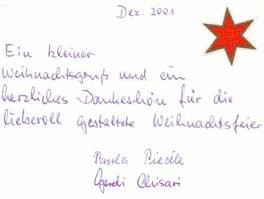 Dez. 2001
Ein kleiner
Weihnachtsgruß und ein
herzliches Dankeschön für die
liebevoll gestaltete Weihnachtsfeier
Paula Riedle
Gerdi